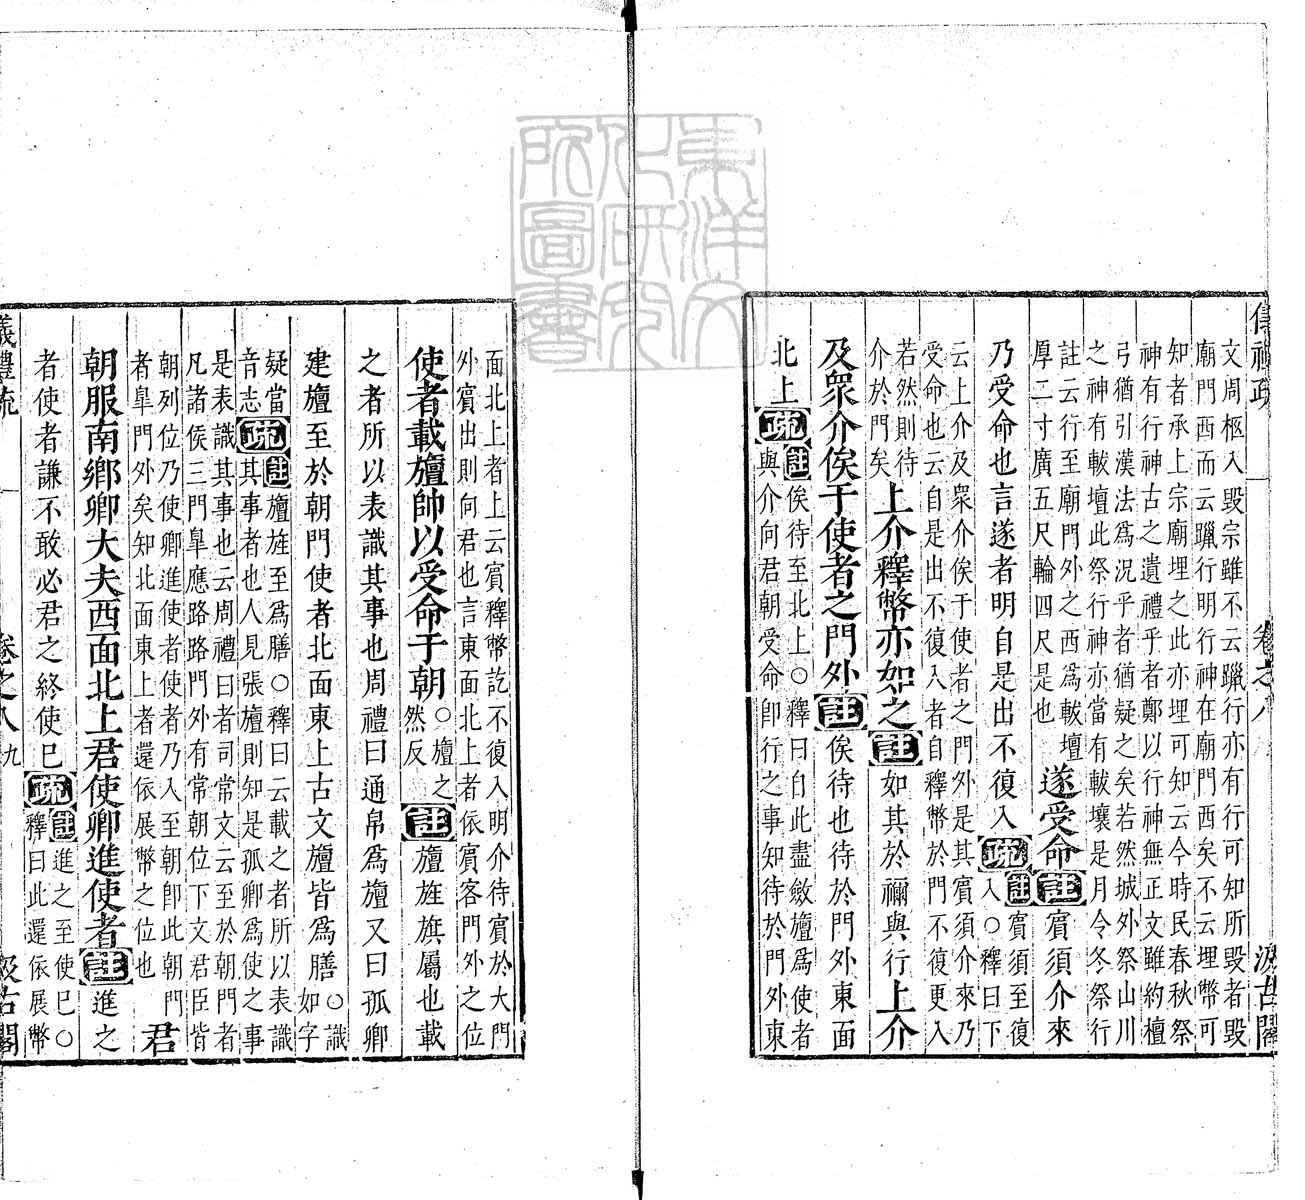 儀禮疏 卷之八 汲古閣
文周柩入毀宗雖不云躐行亦有行可知所毀者毀
廟門西而云躐行明行神在廟門西矣不云埋幣可
知者承上宗廟埋之此亦埋可知云今時民春秋祭
神有行神古之遺禮乎者鄭以行神無正文雖約檀
弓猶引漢法爲況乎者猶疑之矣若然城外祭山川
之神有軷壇此祭行神亦當有軷壤是月令冬祭行
註云行至廟門外之西爲軷壇
厚二寸廣五尺輪四尺是也
遂受命註賓須介來
乃受命也言遂者明自是出不復入疏
註賓須至復
入○釋曰下
云上介及衆介俟于使者之門外是其賓須介來乃
受命也云自是出不復入者自釋幣於門不復更入
若然則待
介於門矣
上介釋幣亦如之註如其於禰與行上介
及眾介俟于使者之門外註俟待也待於門外東面
北上疏
註俟待至北上○釋曰自此盡斂旜爲使者
與介向君朝受命卽行之事知待於門外東
面北上者上云賓釋幣訖不復入明介待賓於大門
外賓出則向君也言東面北上者依賓客門外之位
使者載旜帥以受命于朝
○旜之
然反
註旜旌旗屬也載
之者所以表識其事也周禮曰通帛爲旜又曰孤卿
建旜至於朝門使者北面東上古文旜皆爲膳
○識
如字
疑當
音志
疏
註旜旌至爲膳○釋曰云載之者所以表識
其事者也人見張旜則知是孤卿爲使之事
是表識其事也云周禮曰者司常文云至於朝門者
凡諸侯三門臯應路路門外有常朝位下文君臣皆
朝列位乃使卿進使者使者乃入至朝卽此朝門
者臯門外矣知北面東上者還依展幣之位也
君
朝服南鄉卿大夫西面北上君使卿進使者註進之
者使者謙不敢必君之終使巳疏
註進之至使巳○
釋曰此還依展幣
儀禮疏 卷之八 九 汲古閣
東洋文化研究所圖書